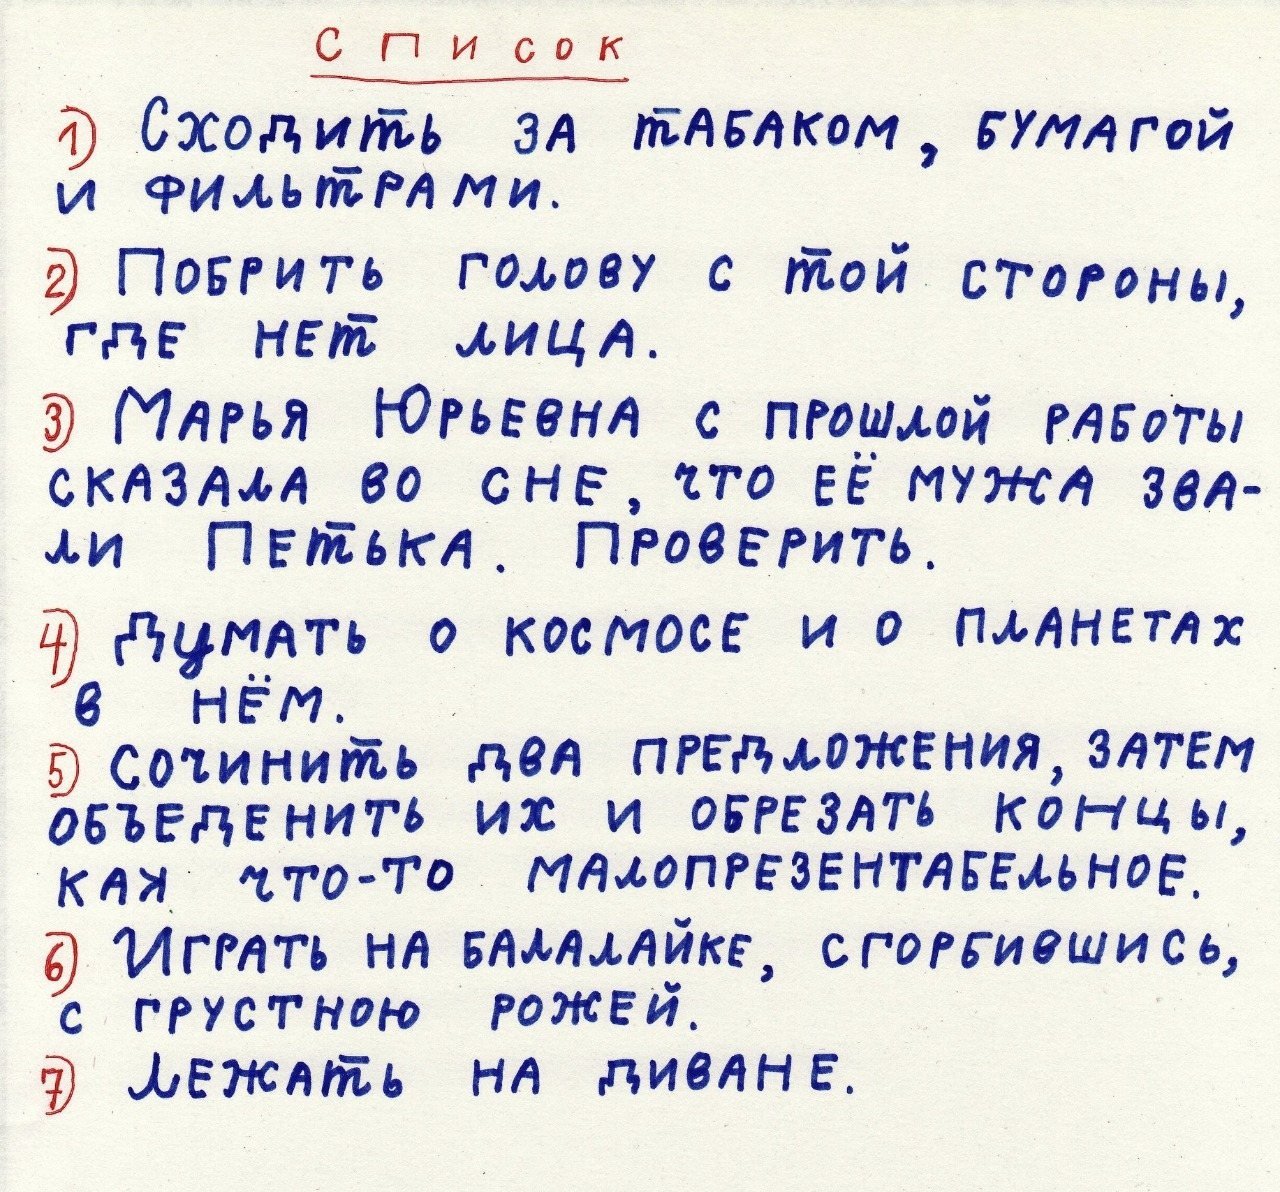 Список
1) Сходить за табаком, бумагой
и фильтрами.
2) Побрить голову с той стороны,
где нет лица.
3) Марья Юрьевна с прошлой работы
сказала во сне, что её мужа зва-
ли Петька. Проверить.
4) Думать о космосе и о планетах
в нём.
5) Сочинить два предложения, затем
объеденить их и обрезать концы,
как что-то малопрезентабельное.
6) Играть на балалайке, сгорбившись,
с грустною рожей.
7) Лежать на диване.